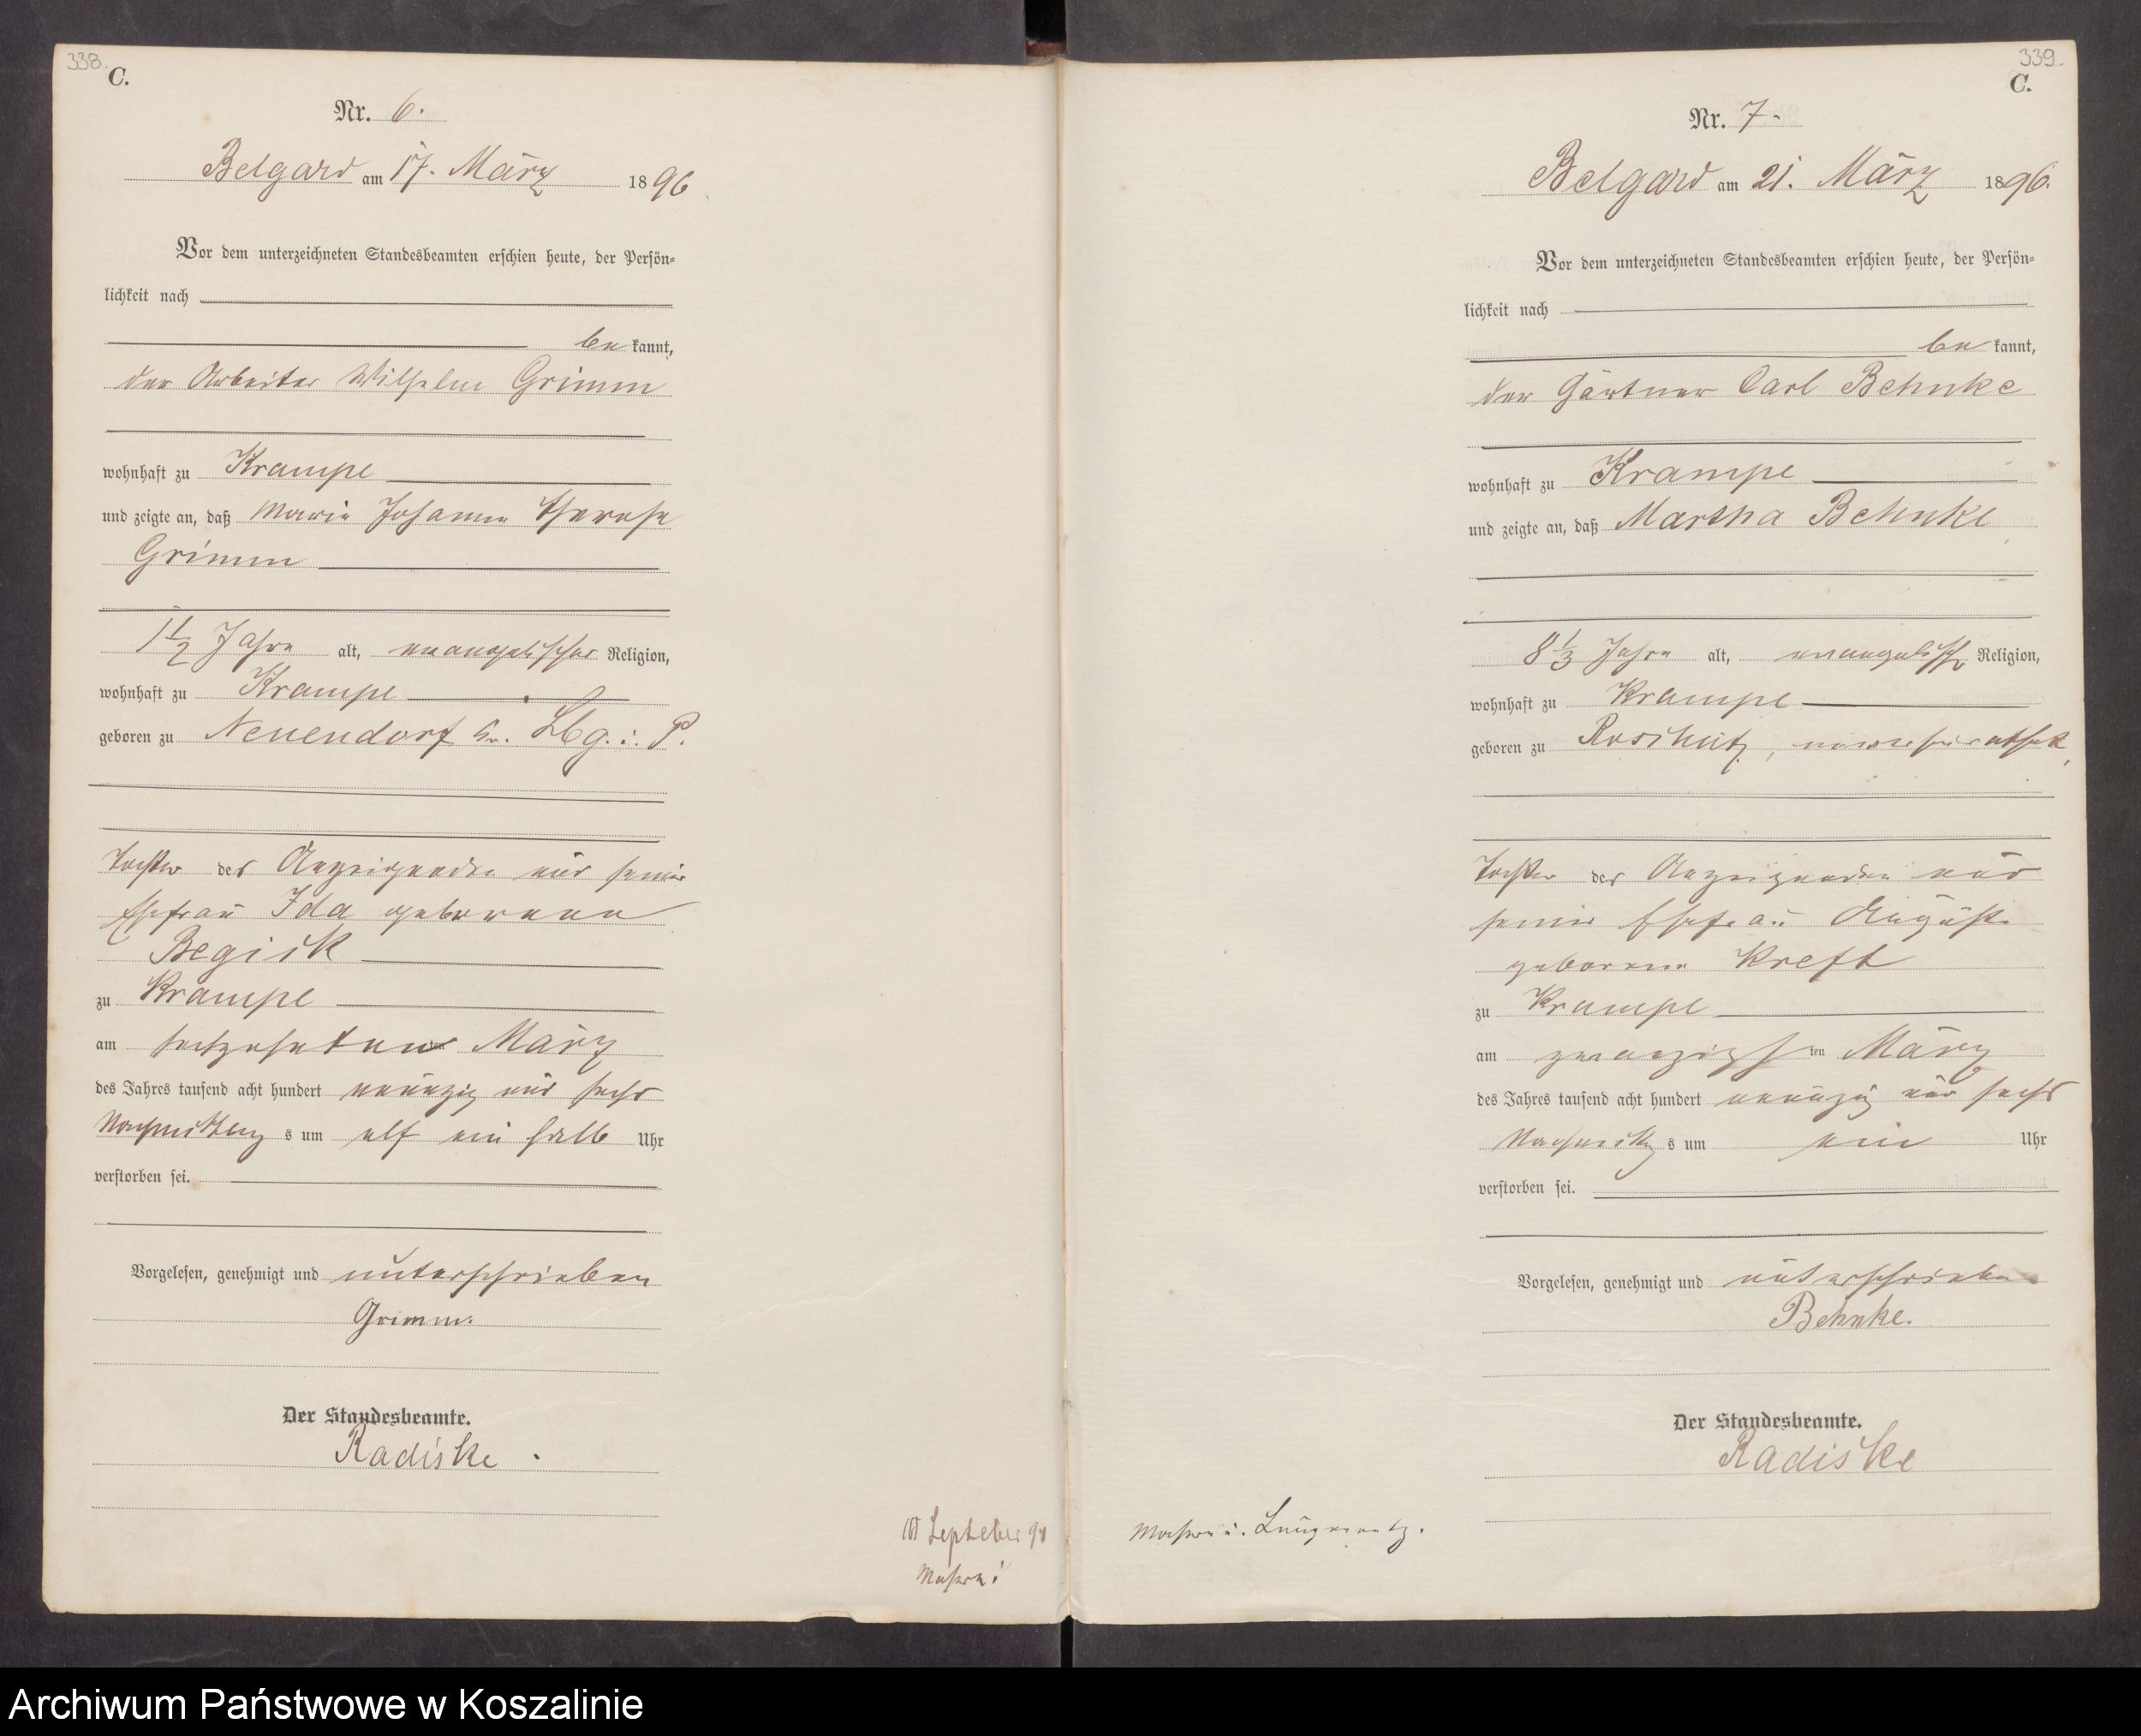 338.
C.
Nr. 6.
Belgard am 17. März 1896
Vor dem unterzeichneten Standesbeamten erschien heute, der Persön-
lichkeit nach
be kannt,
der Arbeiter Wilhelm Grimm
wohnhaft zu Krampe
und zeigte an, daß Marie Johanne Therese
Grimm
1½ Jahre alt, evangelischer Religion,
wohnhaft zu Krampe
geboren zu Neuendorf Kr. Lbg. i. P.
Tochter des Anzeigenden und seiner
Ehefrau Ida geborenen
zu Krampe
am sechzehnten März
des Jahres tausend acht hundert neunzig und sechs
Nachmittags um elf ein halb Uhr
verstorben sei.
Vorgelesen, genehmigt und unterschrieben
Grimm.
Der Standesbeamte.
Radiske
339.
C.
Nr. 7.
Belgard am 21. März 1896.
Vor dem unterzeichneten Standesbeamten erschien heute, der Persön-
lichkeit nach
be kannt,
der Gärtner Carl Behnke
wohnhaft zu Krampe
und zeigte an, daß Martha Behnke
8⅓ Jahre alt, evangelischer Religion,
wohnhaft zu Krampe
geboren zu Roschütz, unverheirathet,
Tochter des Anzeigenden und
seiner Ehefrau Auguste
geborene Kreft
zu Krampe
am zwanzigsten März
des Jahres tausend acht hundert neunzig und sechs
Nachmittags um ein Uhr
verstorben sei.
Vorgelesen, genehmigt und unterschrieben
Behnke.
Der Standesbeamte.
Radiske
Archiwum Państwowe w Koszalinie